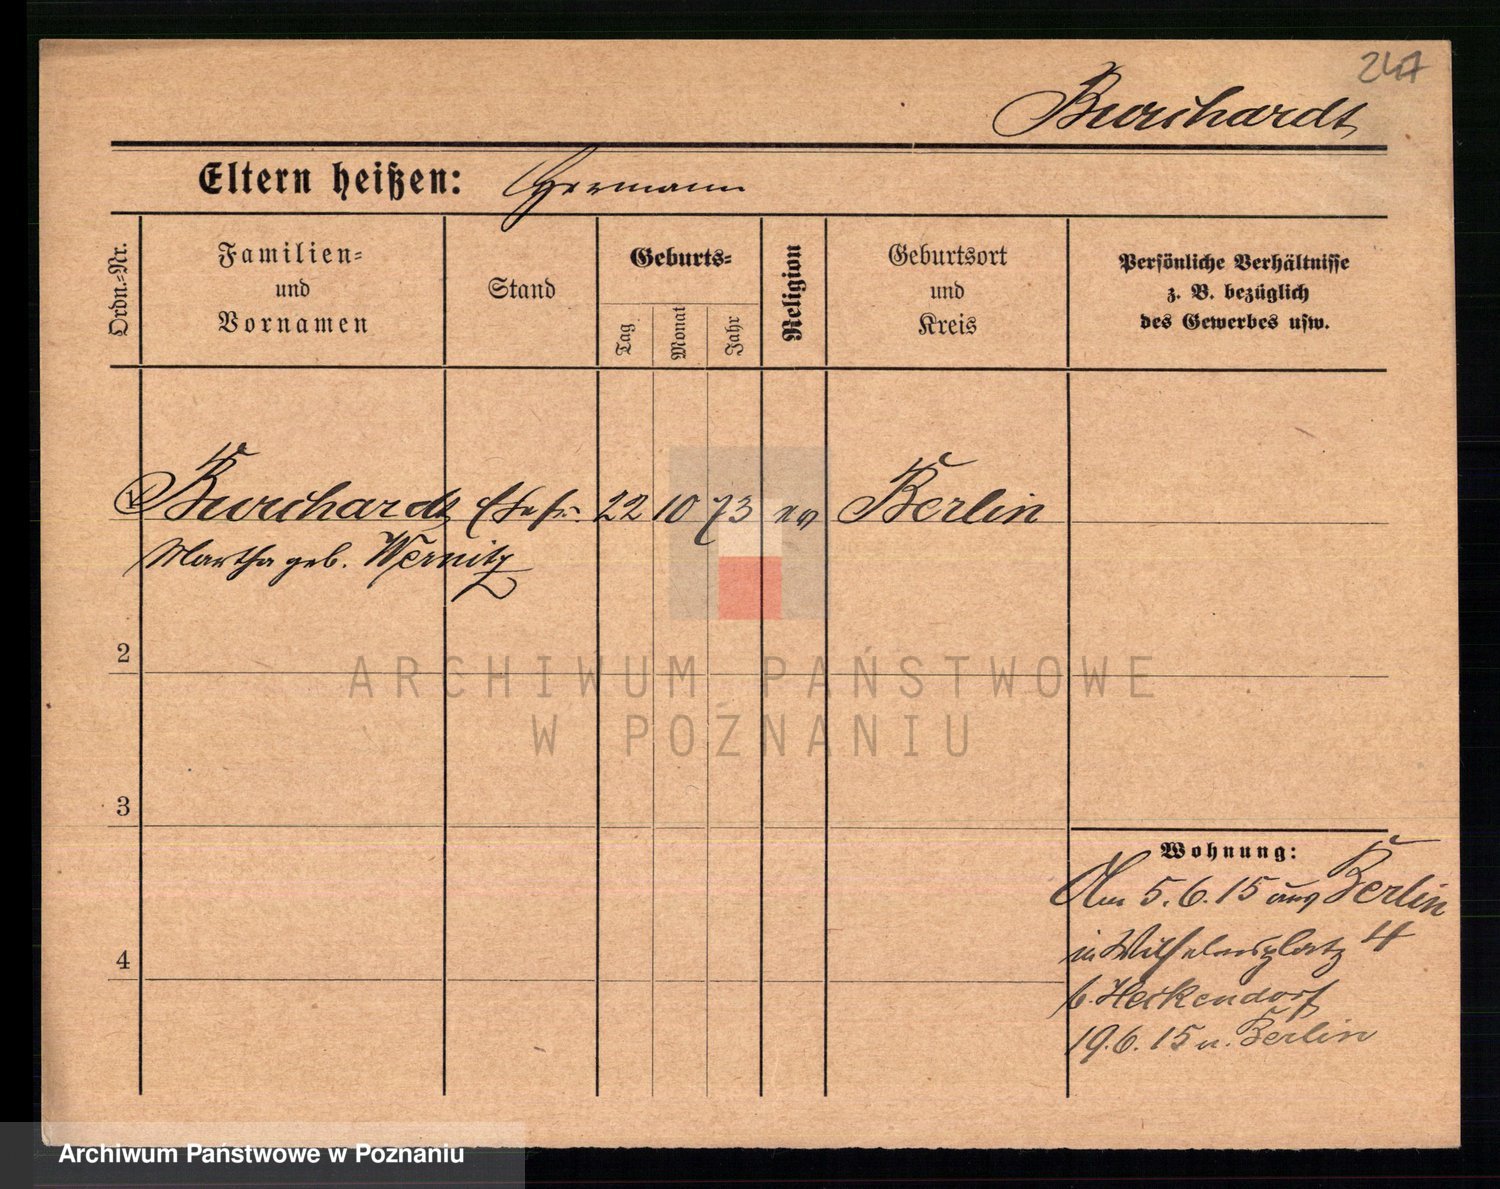 247
Burchardt
Eltern heißen: Hermann
Ordn.-Nr.
Familien-
und
Vornamen
Stand
Geburts-
Tag
Monat
Jahr
Religion
Geburtsort
und
Kreis
Persönliche Verhältnisse
z. B. bezüglich
des Gewerbes usw.
1 Burchardt Ehefr. 22 10 73 ev Berlin
Martha geb. Wernitz
2
ARCHIWUM PAŃSTWOWE
W POZNANIU
3
Wohnung:
Am 5.6.15 aus Berlin
in Wilhelmsplatz 4
b. Heckendorf
4
19.6.15 n. Berlin
Archiwum Państwowe w Poznaniu